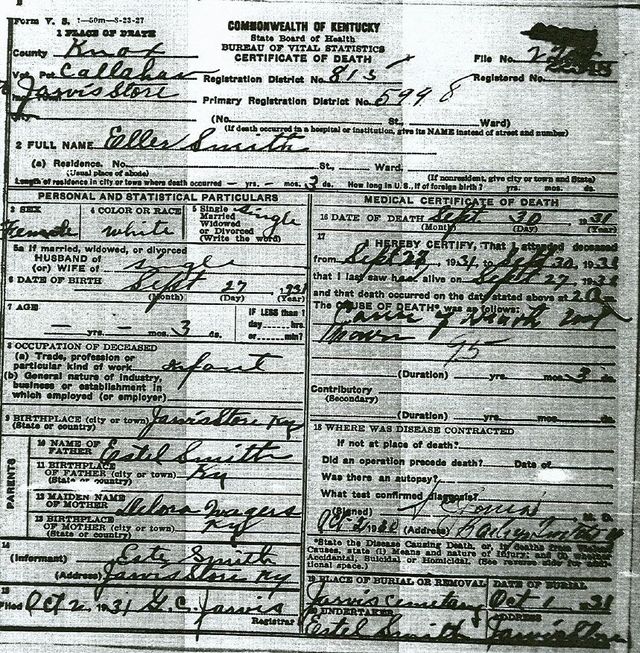 Form V. S. 1-50m-8-23-27
COMMONWEALTH OF KENTUCKY
State Board of Health
BUREAU OF VITAL STATISTICS
CERTIFICATE OF DEATH
1 PLACE OF DEATH
County Knox
File No.
Vot. Pct Callahan
Registration District No. 815
Registered No.
Jarvis Store
Primary Registration District No. 5998
(No. St., Ward)
(If death occurred in a hospital or institution, give its NAME instead of street and number)
2 FULL NAME Eller Smith
(a) Residence. No. St., Ward.
(Usual place of abode) (If nonresident, give city or town and State)
Length of residence in city or town where death occurred - yrs. - mos. 3 ds. How long in U. S., if of foreign birth? yrs. mos. ds.
PERSONAL AND STATISTICAL PARTICULARS
3 SEX Female
4 COLOR OR RACE white
5 Single Married Widowed or Divorced (Write the word) Single
5a If married, widowed, or divorced
HUSBAND of
(or) WIFE of single
6 DATE OF BIRTH Sept 27 1931
(Month) (Day) (Year)
7 AGE
- yrs. - mos. 3 ds.
IF LESS than 1 day hrs. or min?
8 OCCUPATION OF DECEASED
(a) Trade, profession or
particular kind of work infant
(b) General nature of industry,
business or establishment in
which employed (or employer)
9 BIRTHPLACE (city or town) Jarvis Store Ky
(State or country)
PARENTS
10 NAME OF FATHER Estel Smith
11 BIRTHPLACE OF FATHER (city or town) Ky
(State or country)
12 MAIDEN NAME OF MOTHER Delora Wagers
13 BIRTHPLACE OF MOTHER (city or town) Ky
(State or country)
14
(Informant) Estel Smith
(Address) Jarvis Store Ky
15
Filed Oct 2, 1931 G. C. Jarvis
Registrar
MEDICAL CERTIFICATE OF DEATH
16 DATE OF DEATH Sept 30 1931
(Month) (Day) (Year)
17
I HEREBY CERTIFY, That I attended deceased
from Sept 27, 1931 to Sept 30, 1931
that I last saw h alive on Sept 27, 1931
and that death occurred on the date stated above at
The CAUSE OF DEATH* was as follows:
Cause of Death not
known
95
(Duration) yrs. mos. 3 ds.
Contributory
(Secondary)
(Duration) yrs. mos. ds.
18 WHERE WAS DISEASE CONTRACTED
If not at place of death?
Did an operation precede death? Date of
Was there an autopsy?
What test confirmed diagnosis?
(Signed) M. D.
Oct 2, 19 (Address)
*State the Disease Causing Death, or, in deaths from Violent
Causes, state (1) Means and nature of Injury; and (2) whether
Accidental, Suicidal or Homicidal.
19 PLACE OF BURIAL OR REMOVAL Jarvis Cemetary
DATE OF BURIAL Oct 1 1931
20 UNDERTAKER Estel Smith
ADDRESS Jarvis Store